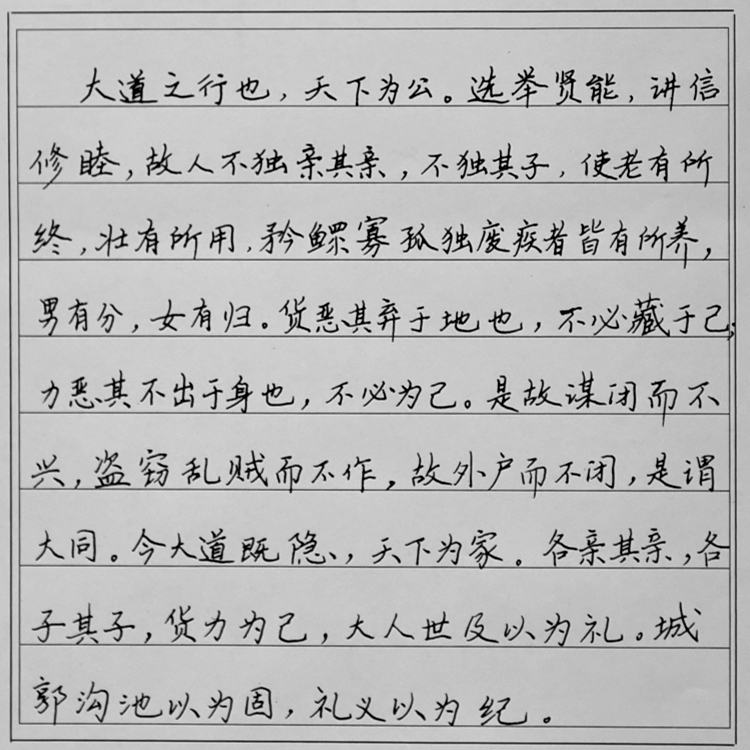 大道之行也，天下为公。选举贤能，讲信
修睦，故人不独亲其亲，不独其子，使老有所
终，壮有所用，矜鳏寡孤独废疾者皆有所养，
男有分，女有归。货恶其弃于地也，不必藏于己；
力恶其不出于身也，不必为己。是故谋闭而不
兴，盗窃乱贼而不作，故外户而不闭，是谓
大同。今大道既隐，天下为家。各亲其亲，各
子其子，货力为己，大人世及以为礼。城
郭沟池以为固，礼义以为纪。